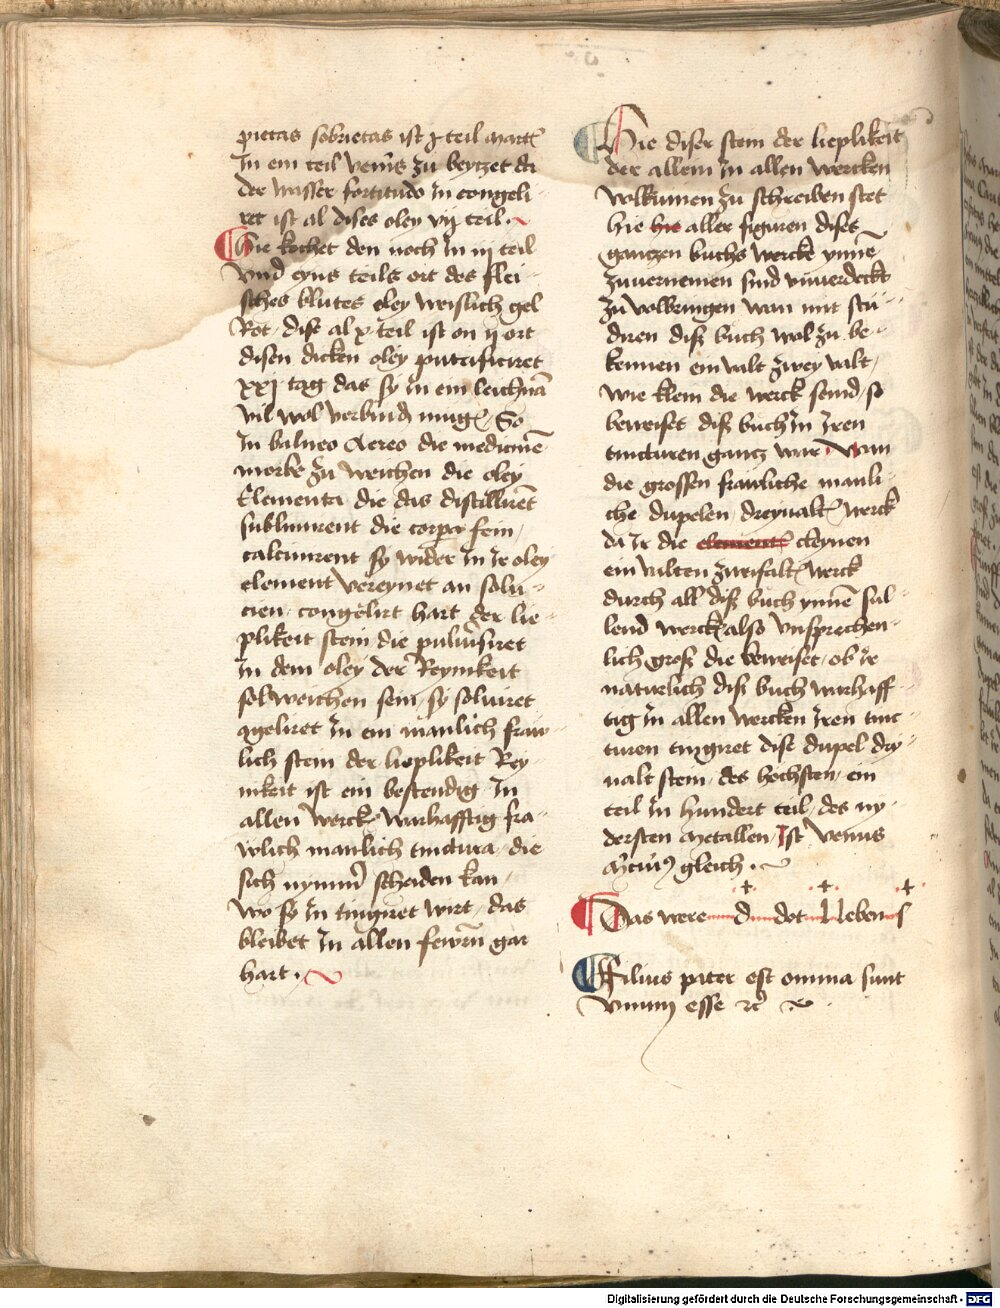 pietas sobrietas ist j teil marti
In ein teil veneris zu beytzet di
der wasser fortitudo In congeli
ret ist al dises oley vij teil.
Hie kochet den noch In iij teil
vnd eyns teils ort des flei
sches blutes oley weislich gel
Rot dise al x teil ist on ij ort
disen dicken oley putrificiret
xxj tag das sy In ein leichnam
vil wol verbinden mugen So
In balneo Aereo die medicinen
morbe zu weichen die oley
Elementa die das distilliret
sublimirent die corper sein
calcinirent sy wider In ir oley
element vereynet an solu
cien congelirt hart der lie
plikeit stein die puluisiret
In dem oley der Reynikeit
sol weichen sein sy soluiret
congeliret In ein manlich frau
lich stein der lieplikeit Rey
nikeit ist ein bestendig In
allen werck warhafftig fra
wlich manlich tinctura die
sich nymmer scheiden kan
wo sy In tingiret wirt das
bleibet In allen fewrn gar
hart.
Hie diser stein der lieplikeit
der allein In allen wercken
volkumen zu schreiben stet
hie hie aller figuren dises
ganczen buchs werck ynnen
zuuernemen sind vnuerdeckt
zu volbringen wan mit stu
diren diß buch wol zu be
kennen ein valt zwey valt
wie klein die werck seind so
beweiset diß buch In Iren
tincturen gancz war wan
die grossen frauliche manli
che dupelen dreyualt werck
da Ir die element cleynen
ein valten zweifalt werck
durch all diß buch ynnen sul
lend werck also vnsprechen
lich groß die beweiset ob ir
naturlich diß buch warhaff
tig In allen wercken Iren tinc
turen tingiret dise dupel dry
ualt stein des hochsten ein
teil In hundert teil des ny
dersten metallen Ist venus
mercurius gleich.
Das were d dot l leben s
Filius pater est omnia sunt
vnum esse etc
Digitalisierung gefördert durch die Deutsche Forschungsgemeinschaft - DFG